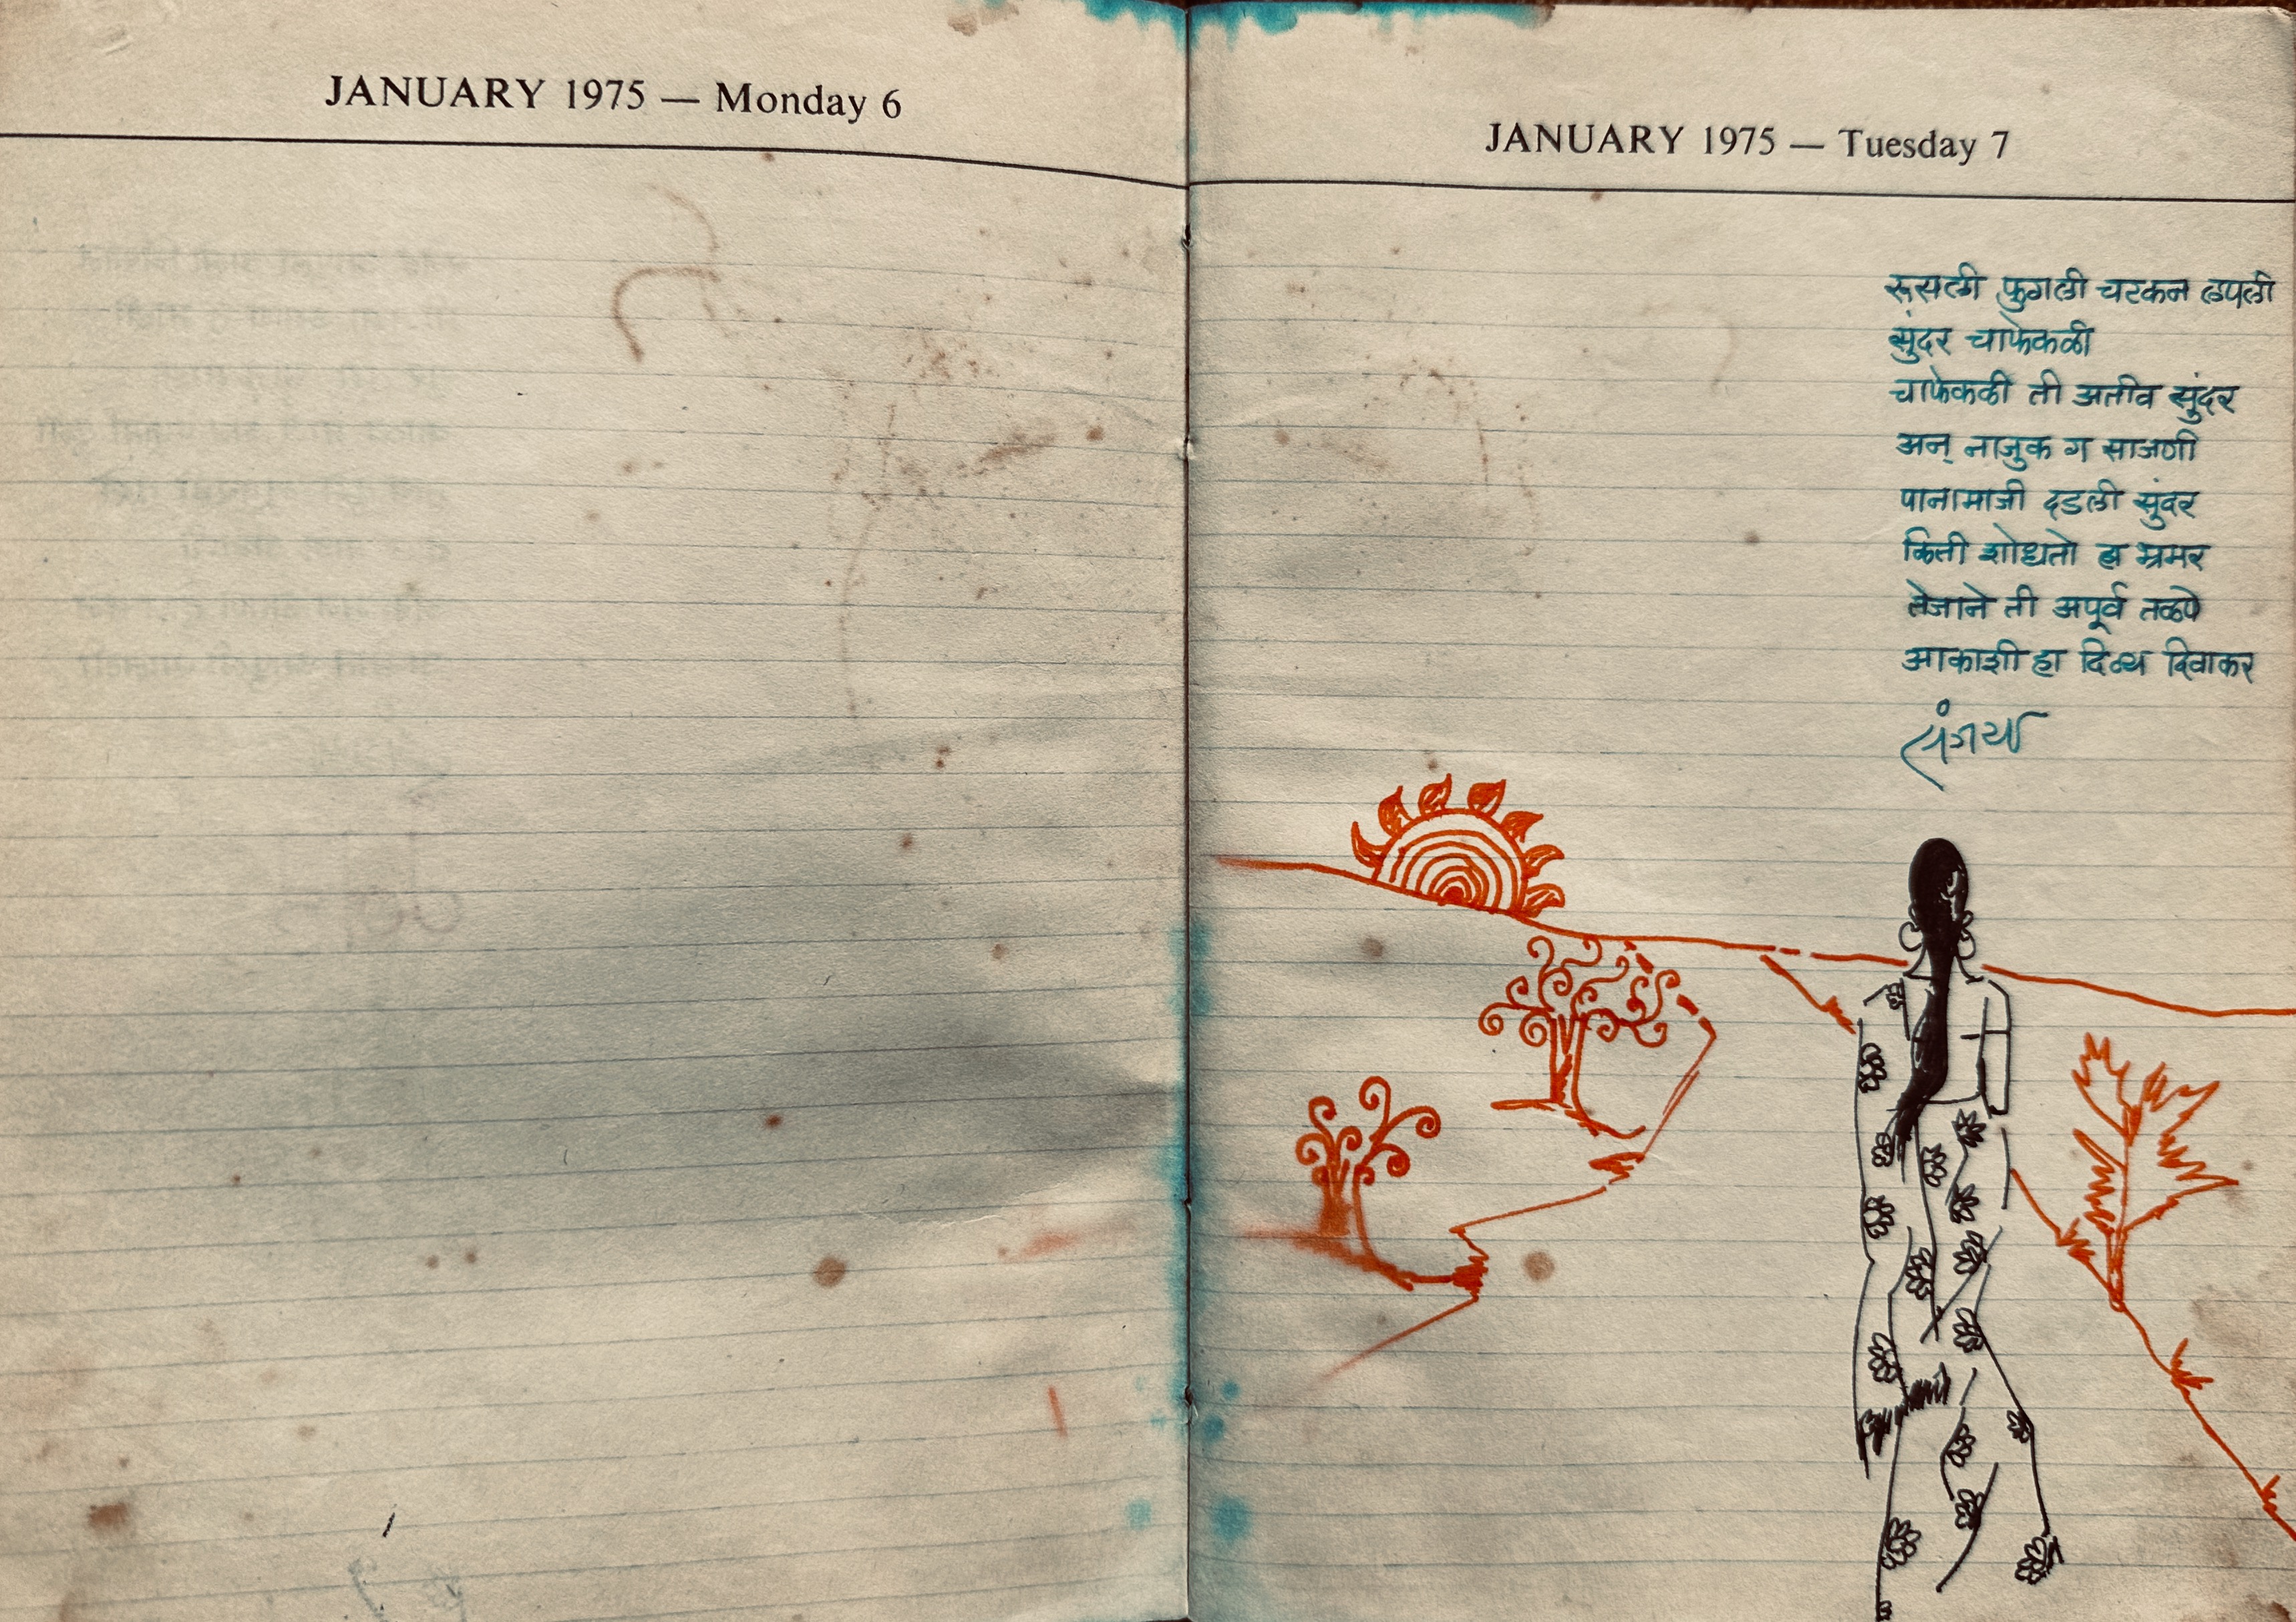 JANUARY 1975 — Monday 6
JANUARY 1975 — Tuesday 7
रुसली फुगली चटकन लपली
सुंदर चाफेकळी
चाफेकळी ती अतीव सुंदर
अन् नाजुक ग साजणी
पानामाजी दडली सुंदर
किती शोधतो हा भ्रमर
तेजाने ती अपूर्व तळपे
आकाशी हा दिव्य दिवाकर